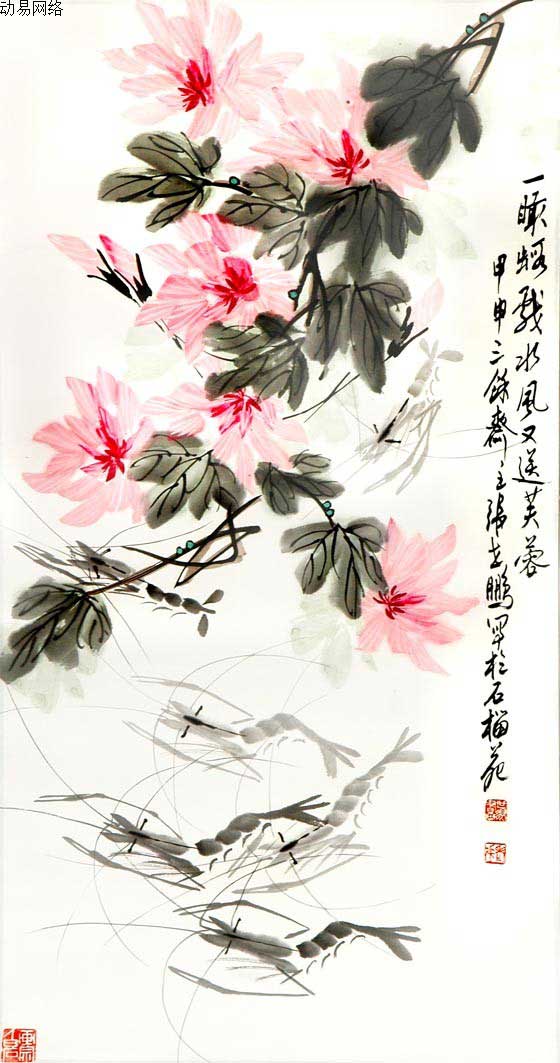 动易网络
一瞬虾戏水风又送芙蓉
甲申三馀斋主张世鹏写于石榴苑